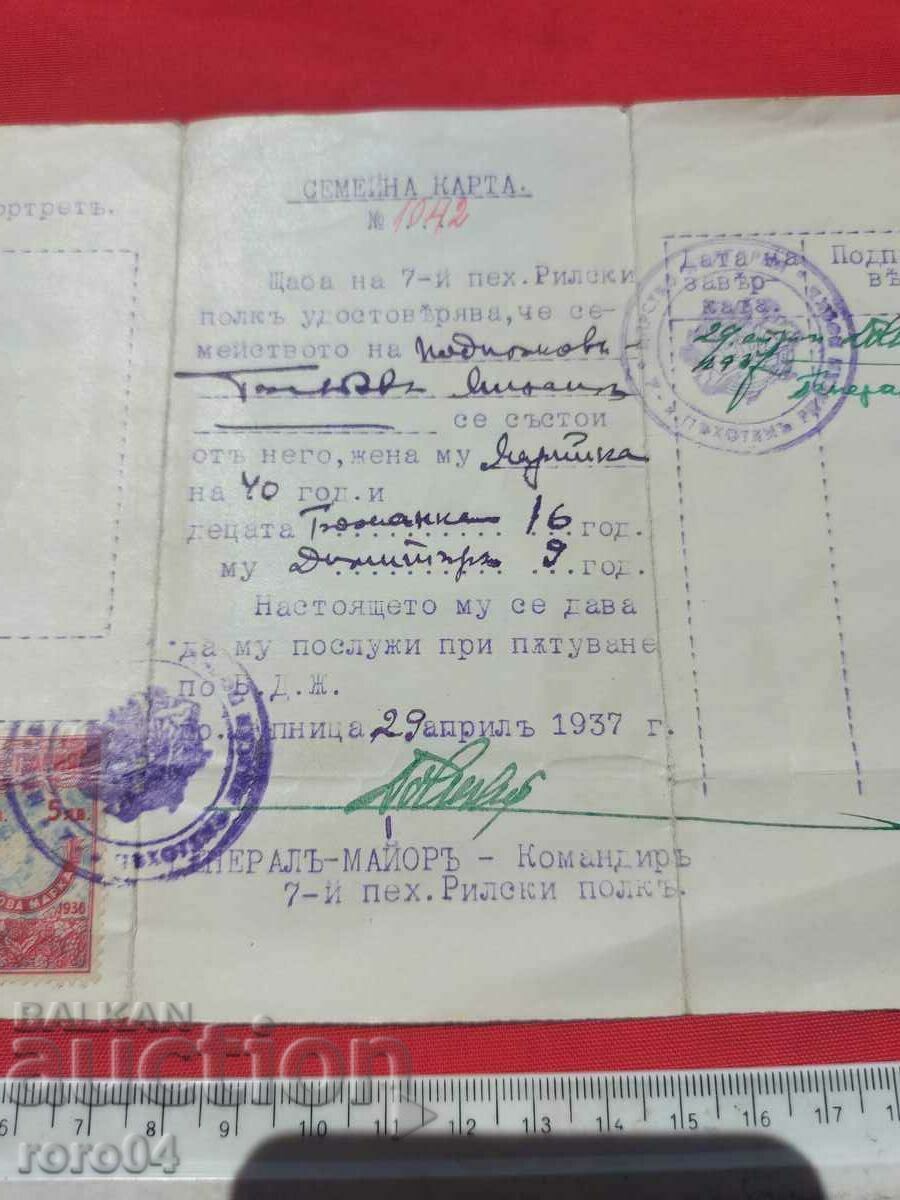 ортретъ.
СЕМЕЙНА КАРТА.
№ 1042
Щаба на 7-й пех.Рилски
полкъ удостовѣрява,че се-
мейството на
се състои
отъ него,жена му Марийка
на 40 год.и
децата 16 год.
му Димитъръ 9 год.
Настоящето му се дава
да му послужи при пѫтуване
по Б.Д.Ж.
29 априлъ 1937 г.
НЕРАЛЪ-МАЙОРЪ - Командиръ
7-й пех.Рилски полкъ.
Дата на
завѣр-
ката.
29 април
1937
Подп
вѣ
Генера
5 лв.
ОВА МАРКА
1936
BALKAN
auction
roro04
6 7 8 9 10 11 12 13 14 15 16 17 18